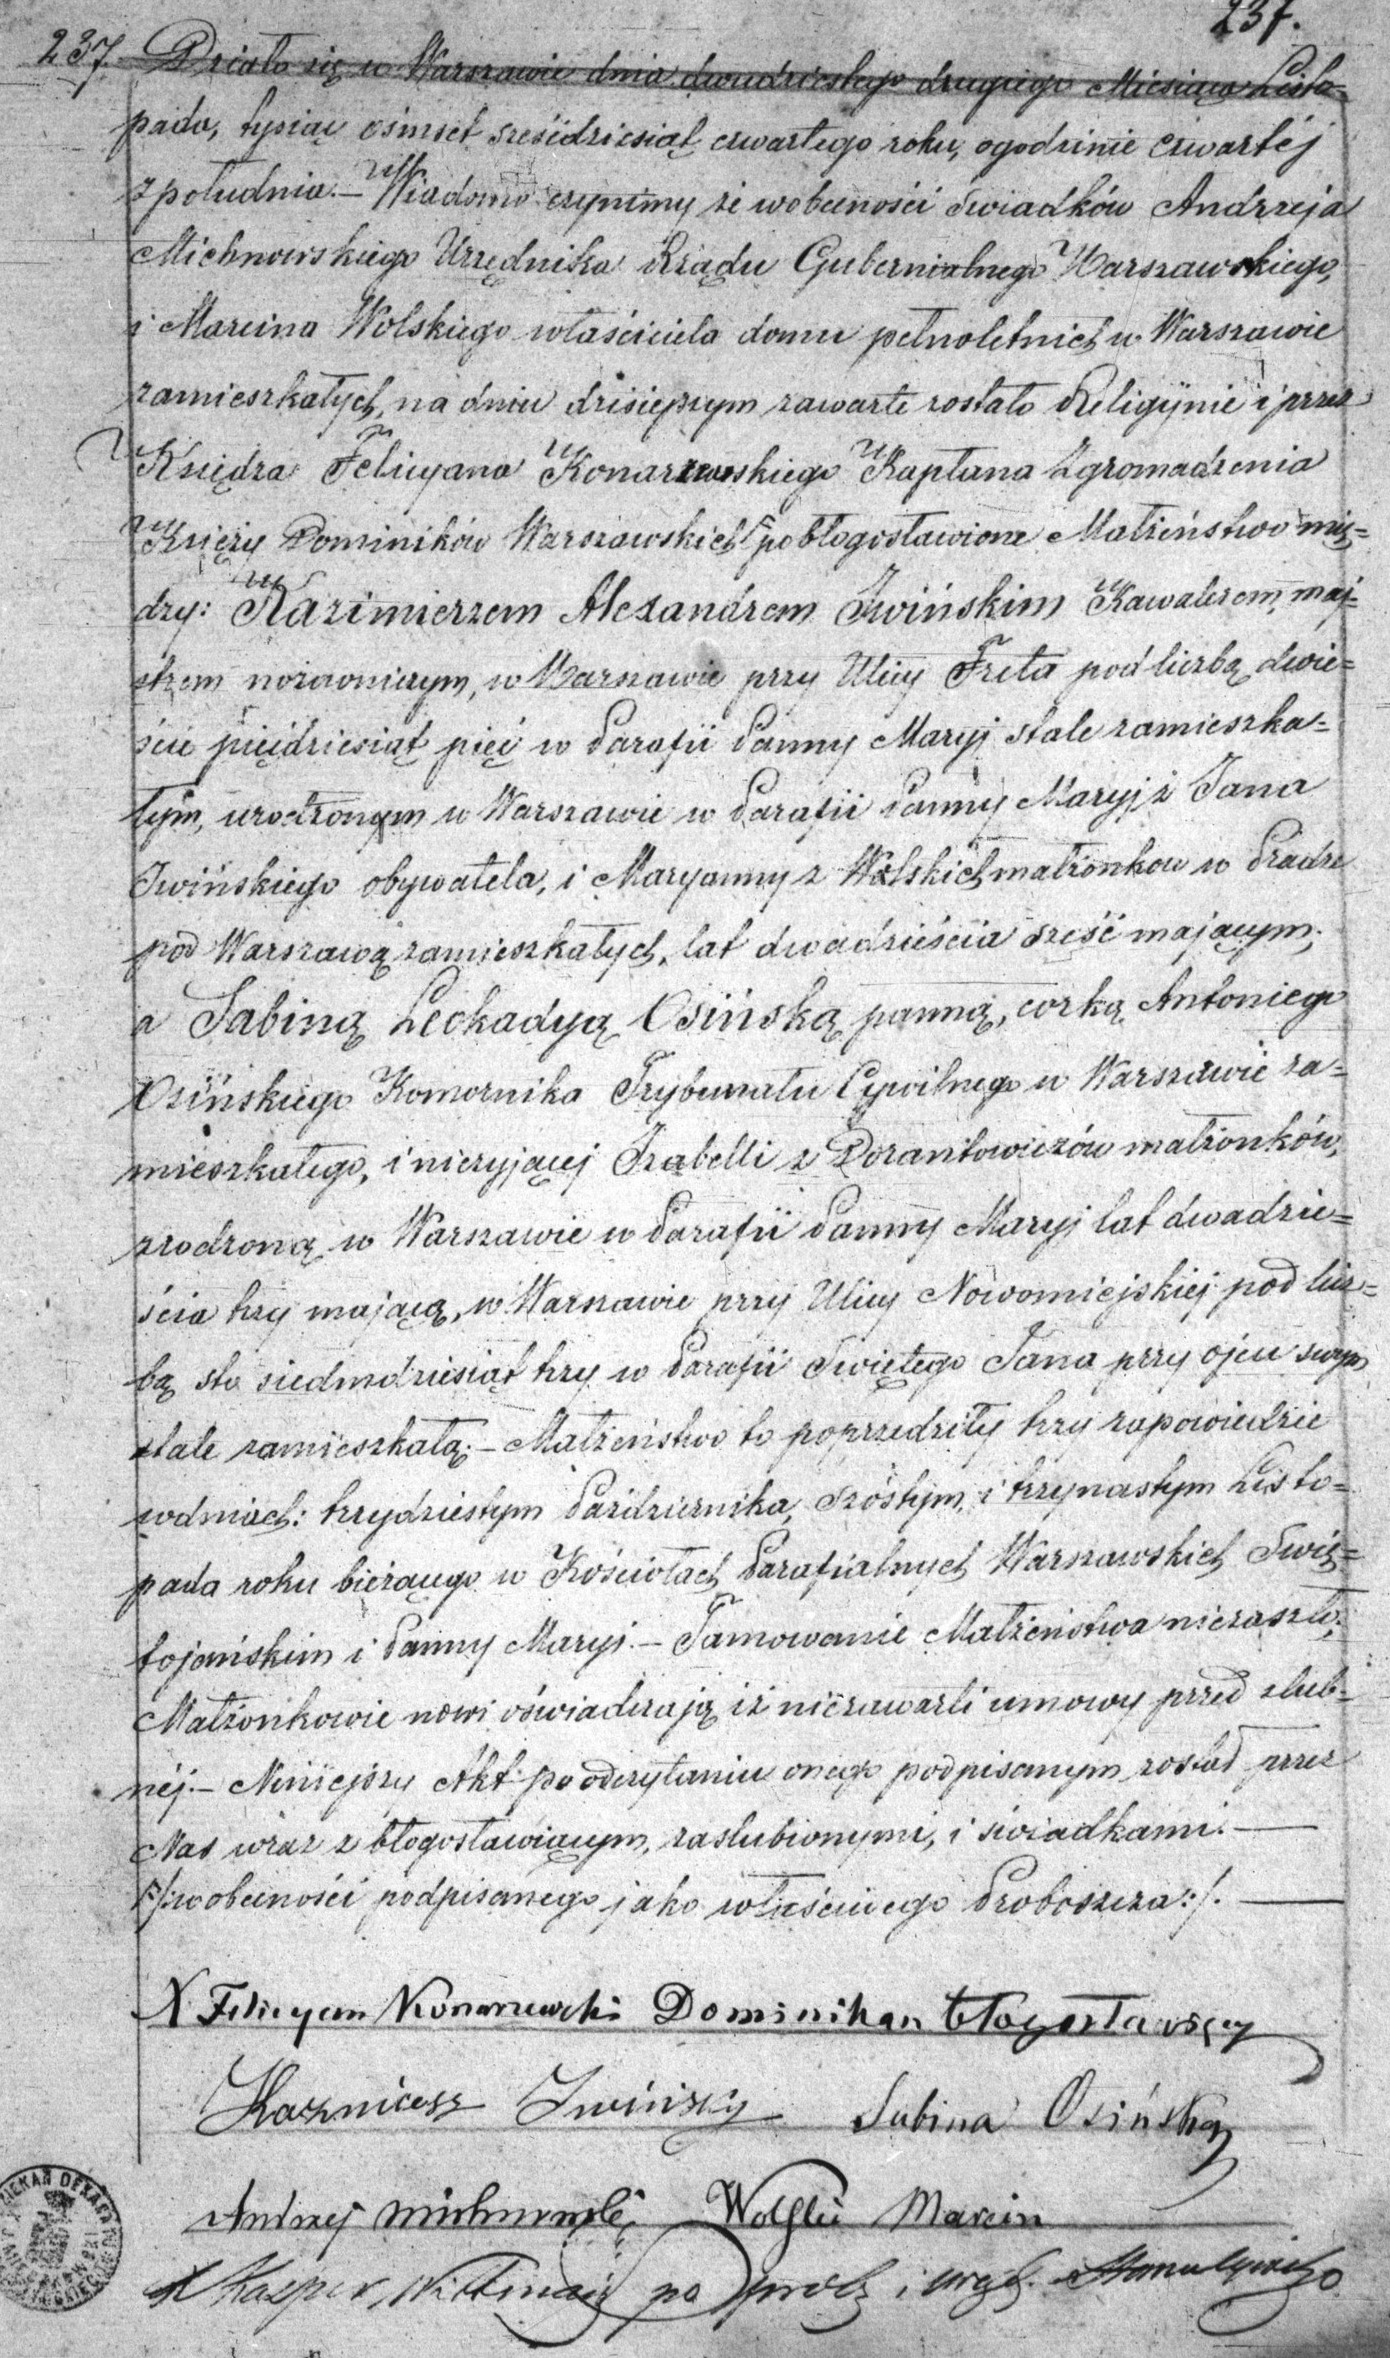 237.
237. Działo się w Warszawie dnia dwudziestego drugiego Miesiąca Listo=
pada, tysiąc ośmset sześćdziesiąt czwartego roku, o godzinie czwartéj
z południa. – Wiadomo czynimy że w obecności świadków Andrzeja
Michnowskiego Urzędnika Rządu Gubernialnego Warszawskiego,
i Marcina Wolskiego właściciela domu pełnoletnich w Warszawie
zamieszkałych, na dniu dzisiejszym zawarte zostało Religijnie i przez
Księdza Felicyana Konarzewskiego Kapłana Zgromadzenia
Księży Dominików Warszawskich pobłogosławione Małżeństwo mię=
dzy: Kazimierzem Alexandrem Iwińskim Kawalerem, maj=
strem nożowniczym, w Warszawie przy Ulicy Freta pod liczbą dwie=
ście pięćdziesiąt pięć w Parafii Panny Maryj stale zamieszka=
łym, urodzonym w Warszawie w Parafii Panny Maryj z Jana
Iwińskiego obywatela, i Maryanny z Wolskich małżonkow w Pradze
pod Warszawą zamieszkałych, lat dwadzieścia sześć mającym;
a Sabiną Leokadyą Osińską panną, corką Antoniego
Osińskiego Komornika Trybunału Cywilnego w Warszawie za=
mieszkałego, i nieżyjącej Izabelli z Dorantowiczów małżonków,
zrodzoną w Warszawie w Parafii Panny Maryj lat dwadzie=
ścia trzy mającą, w Warszawie przy Ulicy Nowomiejskiej pod licz=
bą sto siedmdziesiąt trzy w Parafii Świętego Jana przy ojcu swym
stale zamieszkałą. – Małżeństwo to poprzedziły trzy zapowiedzie
w dniach: trzydziestym Października, szóstym, i trzynastym Listo=
pada roku bieżącego w Kościołach Parafialnych Warszawskich Swię=
tojańskim i Panny Maryi. – Tamowanie Małżeństwa niezaszło;
Małżonkowie nowi oświadczają iż niezawarli umowy przed slub=
néj. – Niniejszy Akt po odczytaniu onego podpisanym został przez
Nas wraz z błogosławiącym, zaslubionymi, i świadkami. —
/:w obecności podpisanego jako właściwego Proboszcza:/. —
X Felicyan Konarzewski Dominikan błogosławiący
Kazmierz Iwińsky Sabina Osińska
Andrzej Michnowski Wolski Marcin
X Kasper